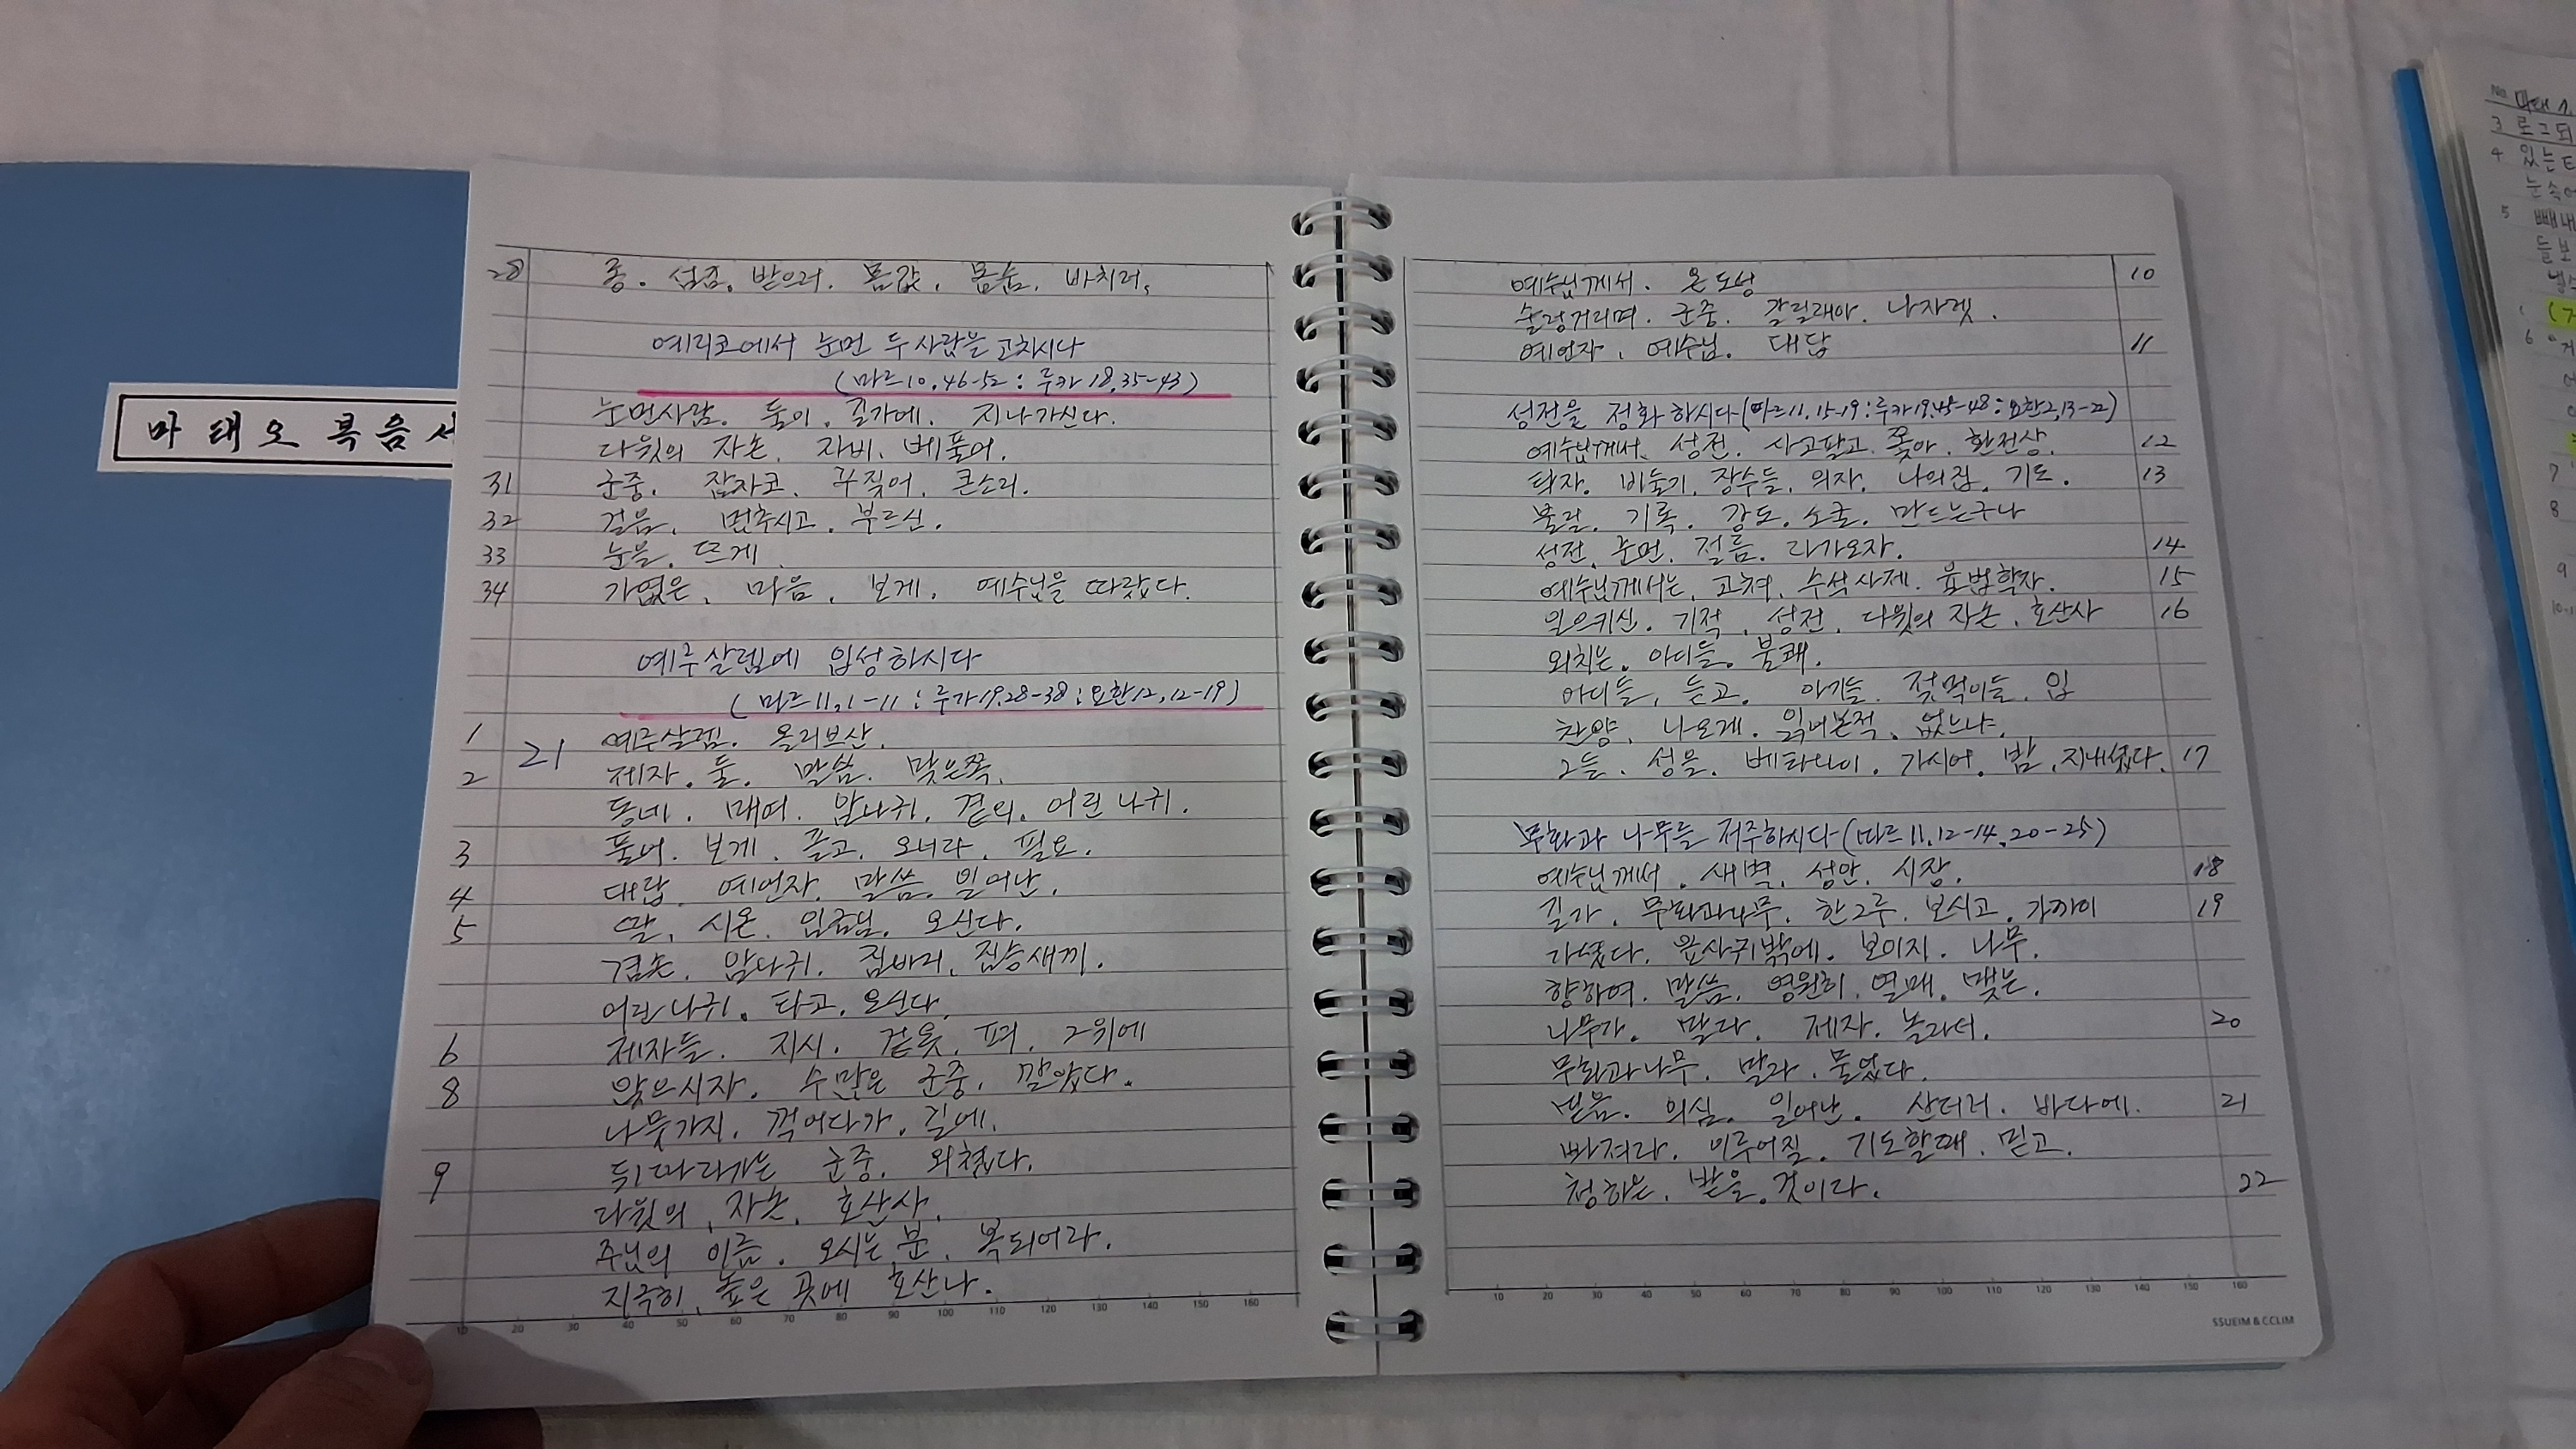 마태오복음서
28 종. 섬김. 받으러. 몸값. 목숨. 바치러.
예리코에서 눈먼 두 사람을 고치시다
(마르10,46-52 : 루카18,35-43)
눈먼사람. 둘이. 길가에. 지나가신다.
다윗의 자손. 자비. 베풀어.
31 군중. 잠자코. 꾸짖어. 큰소리.
32 걸음. 멈추시고. 부르신.
33 눈을. 뜨게
34 가엾은. 마음. 보게. 예수님을 따랐다.
예루살렘에 입성하시다
(마르11,1-11 : 루카19,28-38 : 요한12,12-19)
1 21 예루살렘. 올리브산.
2 제자. 둘. 말씀. 맞은쪽.
동네. 매여. 암나귀. 곁의. 어린 나귀.
3 풀어. 보게. 끌고. 오너라. 필요.
4 대답. 예언자. 말씀. 일어난.
5 딸. 시온. 임금님. 오신다.
겸손. 암나귀. 짐바리. 짐승새끼.
어린나귀. 타고. 오신다.
6 제자들. 지시. 겉옷. 펴. 그위에
8 앉으시자. 수많은 군중. 깔았다.
나뭇가지. 꺽어다가. 길에.
9 뒤따라가는 군중. 외쳤다.
다윗의. 자손. 호산사.
주님의 이름. 오시는 분. 복되어라.
지극히. 높은 곳에 호산나.
예수님께서. 온 도성 10
술렁거리며. 군중. 갈릴래아. 나자렛.
예언자. 예수님. 대답 11
성전을 정화 하시다(마르11,15-19 : 루카19,45-48 : 요한2,13-22)
예수님께서. 성전. 사고팔고. 쫓아. 환전상. 12
탁자. 비둘기. 장수들. 의자. 나의집. 기도. 13
불릴. 기록. 강도. 소굴. 만드는구나
성전. 눈먼. 절름. 다가오자. 14
예수님께서는. 고쳐. 수석사제. 율법학자. 15
일으키신. 기적. 성전. 다윗의 자손. 호산사 16
외치는. 아이들. 불쾌.
아이들. 듣고. 아기들. 젖먹이들. 입
찬양. 나오게. 읽어본적. 없느냐.
그들. 성을. 베타니아. 가시어. 밤. 지내셨다. 17
무화과 나무를 저주하시다(마르11,12-14,20-25)
예수님께서. 새벽. 성안. 시장. 18
길가. 무화과나무. 한그루. 보시고. 가까이 19
가셨다. 잎사귀밖에. 보이지. 나무.
향하여. 말씀. 영원히. 열매. 맺는.
나무가. 말라. 제자. 놀라서. 20
무화과나무. 말라. 물었다.
믿음. 의심. 일어난. 산더러. 바다에. 21
빠져라. 이루어질. 기도할때. 믿고.
청하는. 받을. 것이다. 22
10 20 30 40 50 60 70 80 90 100 110 120 130 140 150 160
10 20 30 40 50 60 70 80 90 100 110 120 130 140 150 160
SSUEIM & CCLIM
No.
3
4 있는
눈 속에
5 빼내
들보
6
7
8
9